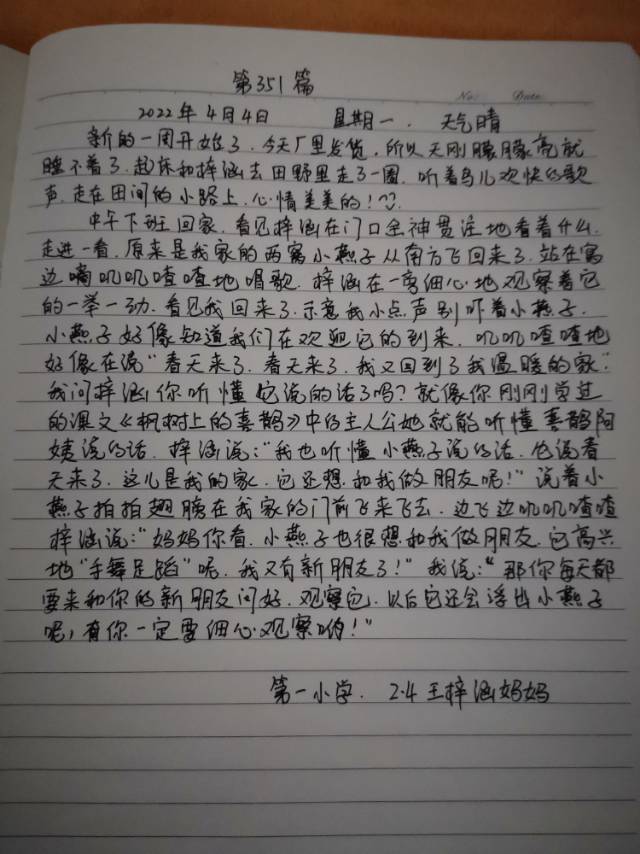 第351篇
No: Date:
2022年4月4日 星期一. 天气晴
新的一周开始了.今天厂里发货.所以天刚朦朦亮就
睡不着了.起床和梓涵去田野里走了一圈.听着鸟儿欢快的歌
声.走在田间的小路上.心情美美的!
中午下班回家.看见梓涵在门口全神贯注地看着什么.
走进一看.原来是我家的两窝小燕子从南方飞回来了.站在窝
边嘀叽叽喳喳地唱歌.梓涵在一旁细心地观察着它
的一举一动.看见我回来了.示意我小点声别吓着小燕子.
小燕子好像知道我们在欢迎它的到来.叽叽喳喳地
好像在说"春天来了.春天来了.我又回到了我温暖的家".
我问梓涵你听懂它说的话了吗?就像你刚刚学过
的课文《枫树上的喜鹊》中的主人公她就能听懂喜鹊阿
姨说的话.梓涵说:"我也听懂小燕子说的话.他说春
天来了.这儿是我的家.它还想和我做朋友呢!"说着小
燕子拍拍翅膀在我家的门前飞来飞去.边飞边叽叽喳喳
梓涵说:"妈妈你看.小燕子也很想和我做朋友.它高兴
地"手舞足蹈"呢.我又有新朋友了!"我说:"那你每天都
要来和你的新朋友问好.观察它.以后它还会孵出小燕子
呢,有你一定要细心观察哟!"
第一小学. 2.4 王梓涵妈妈